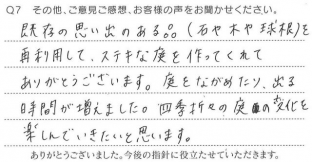 Q7 その他、ご意見ご感想、お客様の声をお聞かせください。
既存の思い出のある品。(石や木や球根)を
再利用して、ステキな庭を作ってくれて
ありがとうございます。庭をながめたり、出る
時間が増えました。四季折々の庭の変化を
楽しんでいきたいと思います。
ありがとうございました。今後の指針に役立たせていただきます。